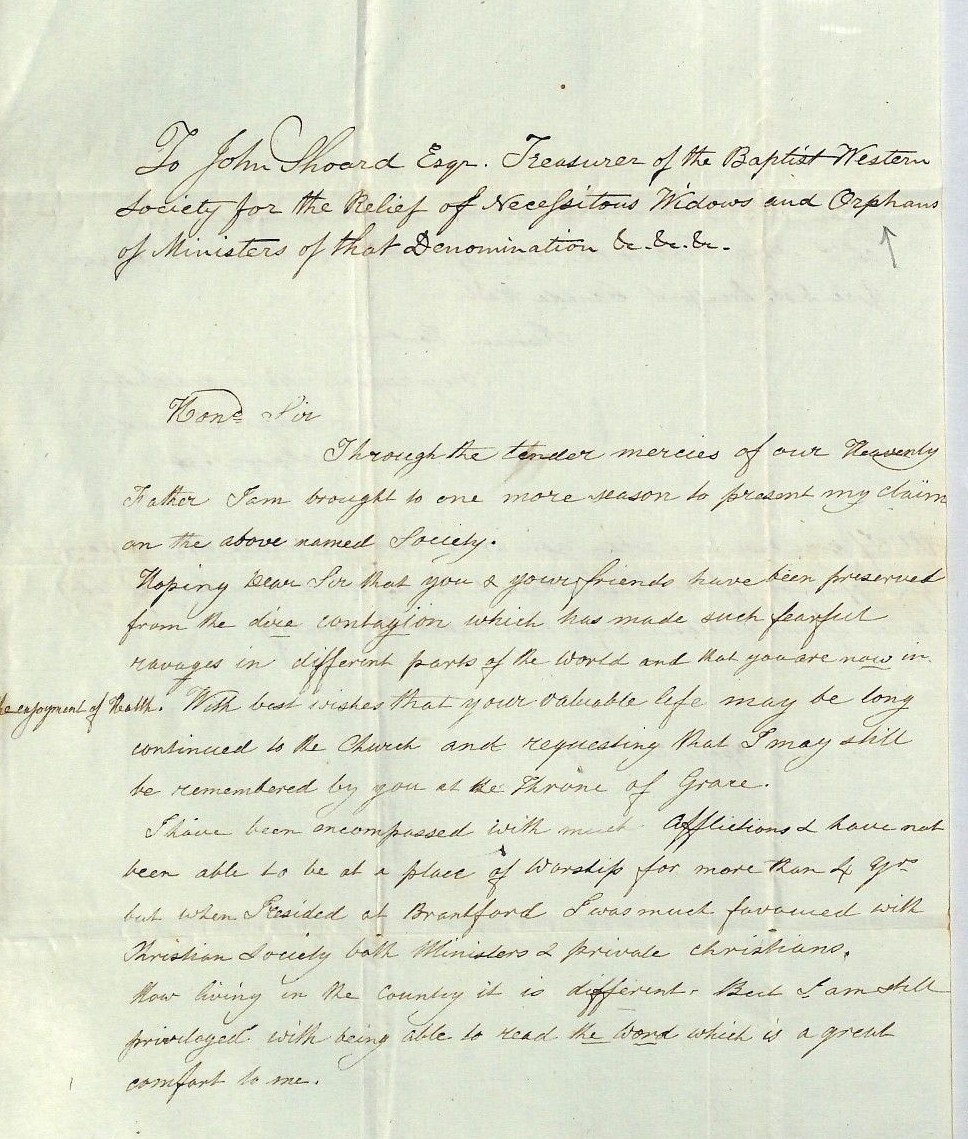 To John Shoard Esqr. Treasurer of the Baptist Western
Society for the Relief of Necessitous Widows and Orphans
of Ministers of that Denomination &c. &c. &c.
Hond Sir
Through the tender mercies of our Heavenly
Father I am brought to one more season to present my claim
on the above named Society.
Hoping Dear Sir that you & your friends have been preserved
from the dire contagion which has made such fearful
ravages in different parts of the world and that you are now in
the enjoyment of Health. With best wishes that your valuable life may be long
continued to the Church and requesting that I may still
be remembered by you at the Throne of Grace.
I have been encompassed with much Afflictions & have not
been able to be at a place of Worship for more than 4 yrs
but when I resided at Brantford I was much favoured with
Christian Society both Ministers & private christians.
Now living in the Country it is different. But I am still
privilaged with being able to read the Word which is a great
comfort to me.